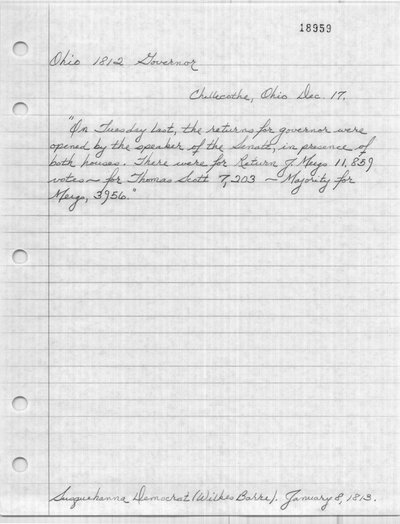 18959
Ohio 1812 Governor
Chillicothe, Ohio Dec. 17.
"On Tuesday last, the returns for governor were
opened by the speaker of the Senate, in presence of
both houses. There were for Return J. Meigs 11,859
votes — for Thomas Scott 7,203 — Majority for
Meigs, 3956."
Susquehanna Democrat (Wilkes Barre). January 8, 1813.